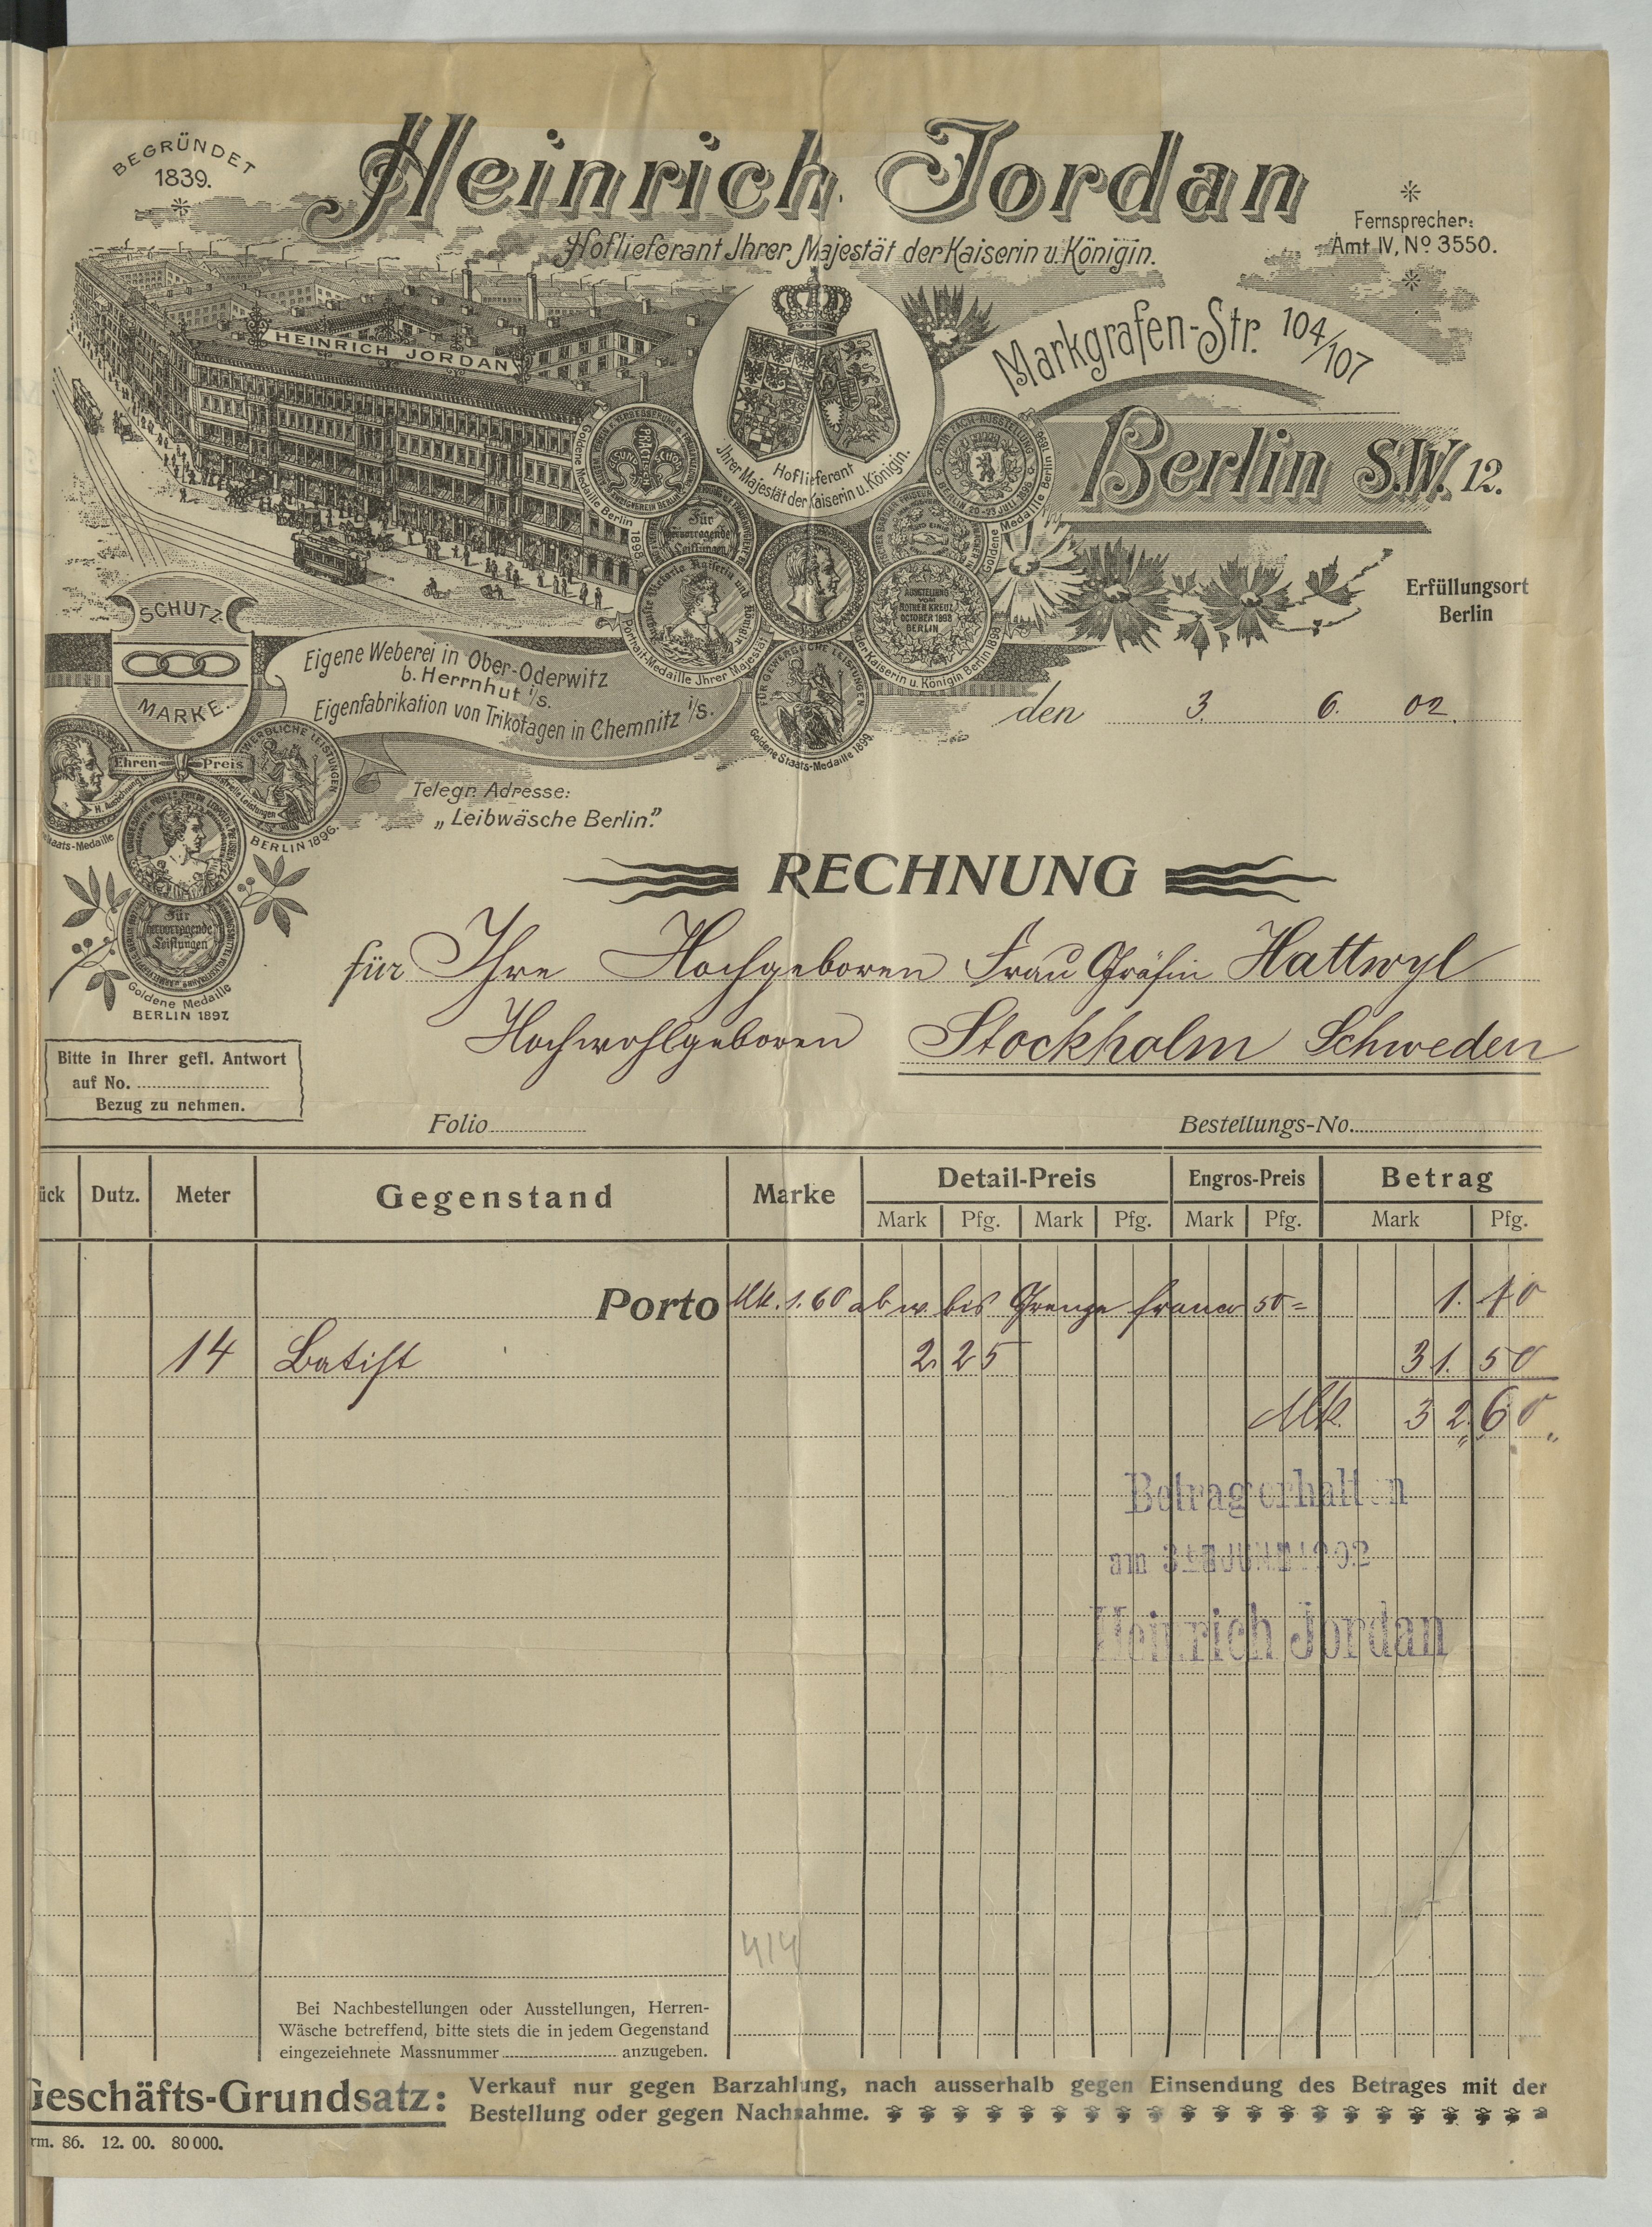 BEGRÜNDET
1839.
Heinrich Jordan
Hoflieferant Ihrer Majestät der Kaiserin u. Königin.
Fernsprecher:
Amt IV, No 3550.
HEINRICH JORDAN
Markgrafen-Str. 104/107
Berlin S.W. 12.
Hoflieferant
Ihrer Majestät der Kaiserin u. Königin.
Goldene Medaille Berlin 1898
Goldene Medaille Berlin 1896
Für
hervorragende
Leistungen
AUSSTELLUNG
VOM
ROTHEN KREUZ
OCTOBER 1898
BERLIN
Portrait-Medaille Ihrer Majestät der Kaiserin u. Königin Berlin 1898
FÜR GEWERBLICHE LEISTUNGEN
Goldene Staats-Medaille 1899.
Erfüllungsort
Berlin
SCHUTZ-
MARKE.
Eigene Weberei in Ober-Oderwitz
b. Herrnhut i/S.
Eigenfabrikation von Trikotagen in Chemnitz i/S.
den 3. 6. 02.
Ehren Preis
Staats-Medaille
BERLIN 1896.
Für
hervorragende
Leistungen
Goldene Medaille
BERLIN 1897.
Telegr. Adresse:
„Leibwäsche Berlin."
RECHNUNG
für Ihre Hochgeboren Frau Gräfin Hattwyl
Hochwohlgeboren Stockholm Schweden
Bitte in Ihrer gefl. Antwort
auf No.
Bezug zu nehmen.
Folio Bestellungs-No.
ück Dutz. Meter Gegenstand Marke Detail-Preis Engros-Preis Betrag
Mark Pfg. Mark Pfg. Mark Pfg. Mark Pfg.
Porto Mk. 1.60 ab w. bis Grenze franco 50 = 1. 10
14 Batist 2. 25 31. 50
Mk. 32. 60
Betrag erhalten
am 3 JUNI 1902
Heinrich Jordan
414
Bei Nachbestellungen oder Ausstellungen, Herren-
Wäsche betreffend, bitte stets die in jedem Gegenstand
eingezeiehnete Massnummer anzugeben.
Geschäfts-Grundsatz: Verkauf nur gegen Barzahlung, nach ausserhalb gegen Einsendung des Betrages mit der
Bestellung oder gegen Nachnahme.
rm. 86. 12. 00. 80000.